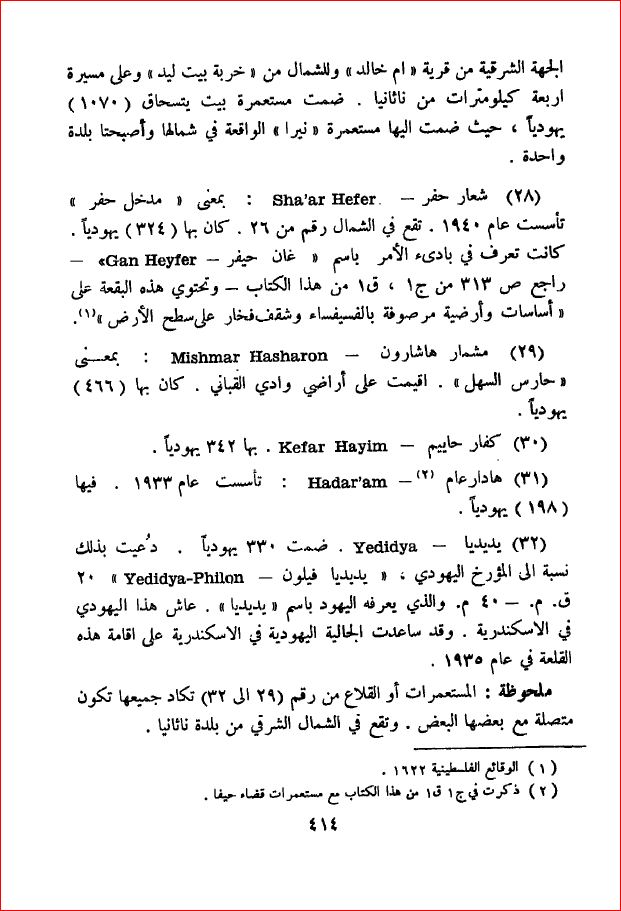 الجهة الشرقية من قرية « ام خالد » وللشمال من « خربة بيت ليد » وعلى مسيرة
اربعة كيلومترات من ناثانيا . ضمت مستعمرة بيت يتسحاق ( ١٠٧٠ )
يهودياً ، حيث ضمت اليها مستعمرة « نيرا » الواقعة في شمالها وأصبحتا بلدة
واحدة .
(٢٨) شعار حفر – Sha'ar Hefer : بمعنى « مدخل حفر »
تأسست عام ١٩٤٠ . تقع في الشمال رقم من ٢٦ . كان بها ( ٣٢٤ ) يهودياً .
كانت تعرف في بادىء الأمر باسم « غان حيفر – Gan Heyfer» –
راجع ص ٣١٣ من ج١ ، ق١ من هذا الكتاب – وتحتوي هذه البقعة على
« أساسات وأرضية مرصوفة بالفسيفساء وشقف فخار على سطح الأرض »(١).
(٢٩) مشمار هاشارون – Mishmar Hasharon : بمعـنى
« حارس السهل » . اقيمت على أراضي وادي القباني . كان بها ( ٤٦٦ )
يهودياً .
(٣٠) كفار حاييم – Kefar Hayim . بها ٣٤٢ يهودياً .
(٣١) هادارعام (٢) – Hadar'am : تأسست عام ١٩٣٣ . فيها
( ١٩٨ ) يهودياً .
(٣٢) يديديا – Yedidya . ضمت ٣٣٠ يهودياً . دُعيت بذلك
نسبة الى المؤرخ اليهودي ، « يديديا فيلون – Yedidya-Philon » ٢٠
ق. م. – ٤٠ م. والذي يعرفه اليهود باسم « يديديا » . عاش هذا اليهودي
في الاسكندرية . وقد ساعدت الجالية اليهودية في الاسكندرية على اقامة هذه
القلعة في عام ١٩٣٥ .
ملحوظة : المستعمرات أو القلاع من رقم (٢٩ الى ٣٢) تكاد جميعها تكون
متصلة مع بعضها البعض . وتقع في الشمال الشرقي من بلدة ناثانيا .
( ١ ) الوقائع الفلسطينية ١٦٢٢ .
( ٢ ) ذكرت في ج١ ق١ من هذا الكتاب مع مستعمرات قضاء حيفا .
٤١٤